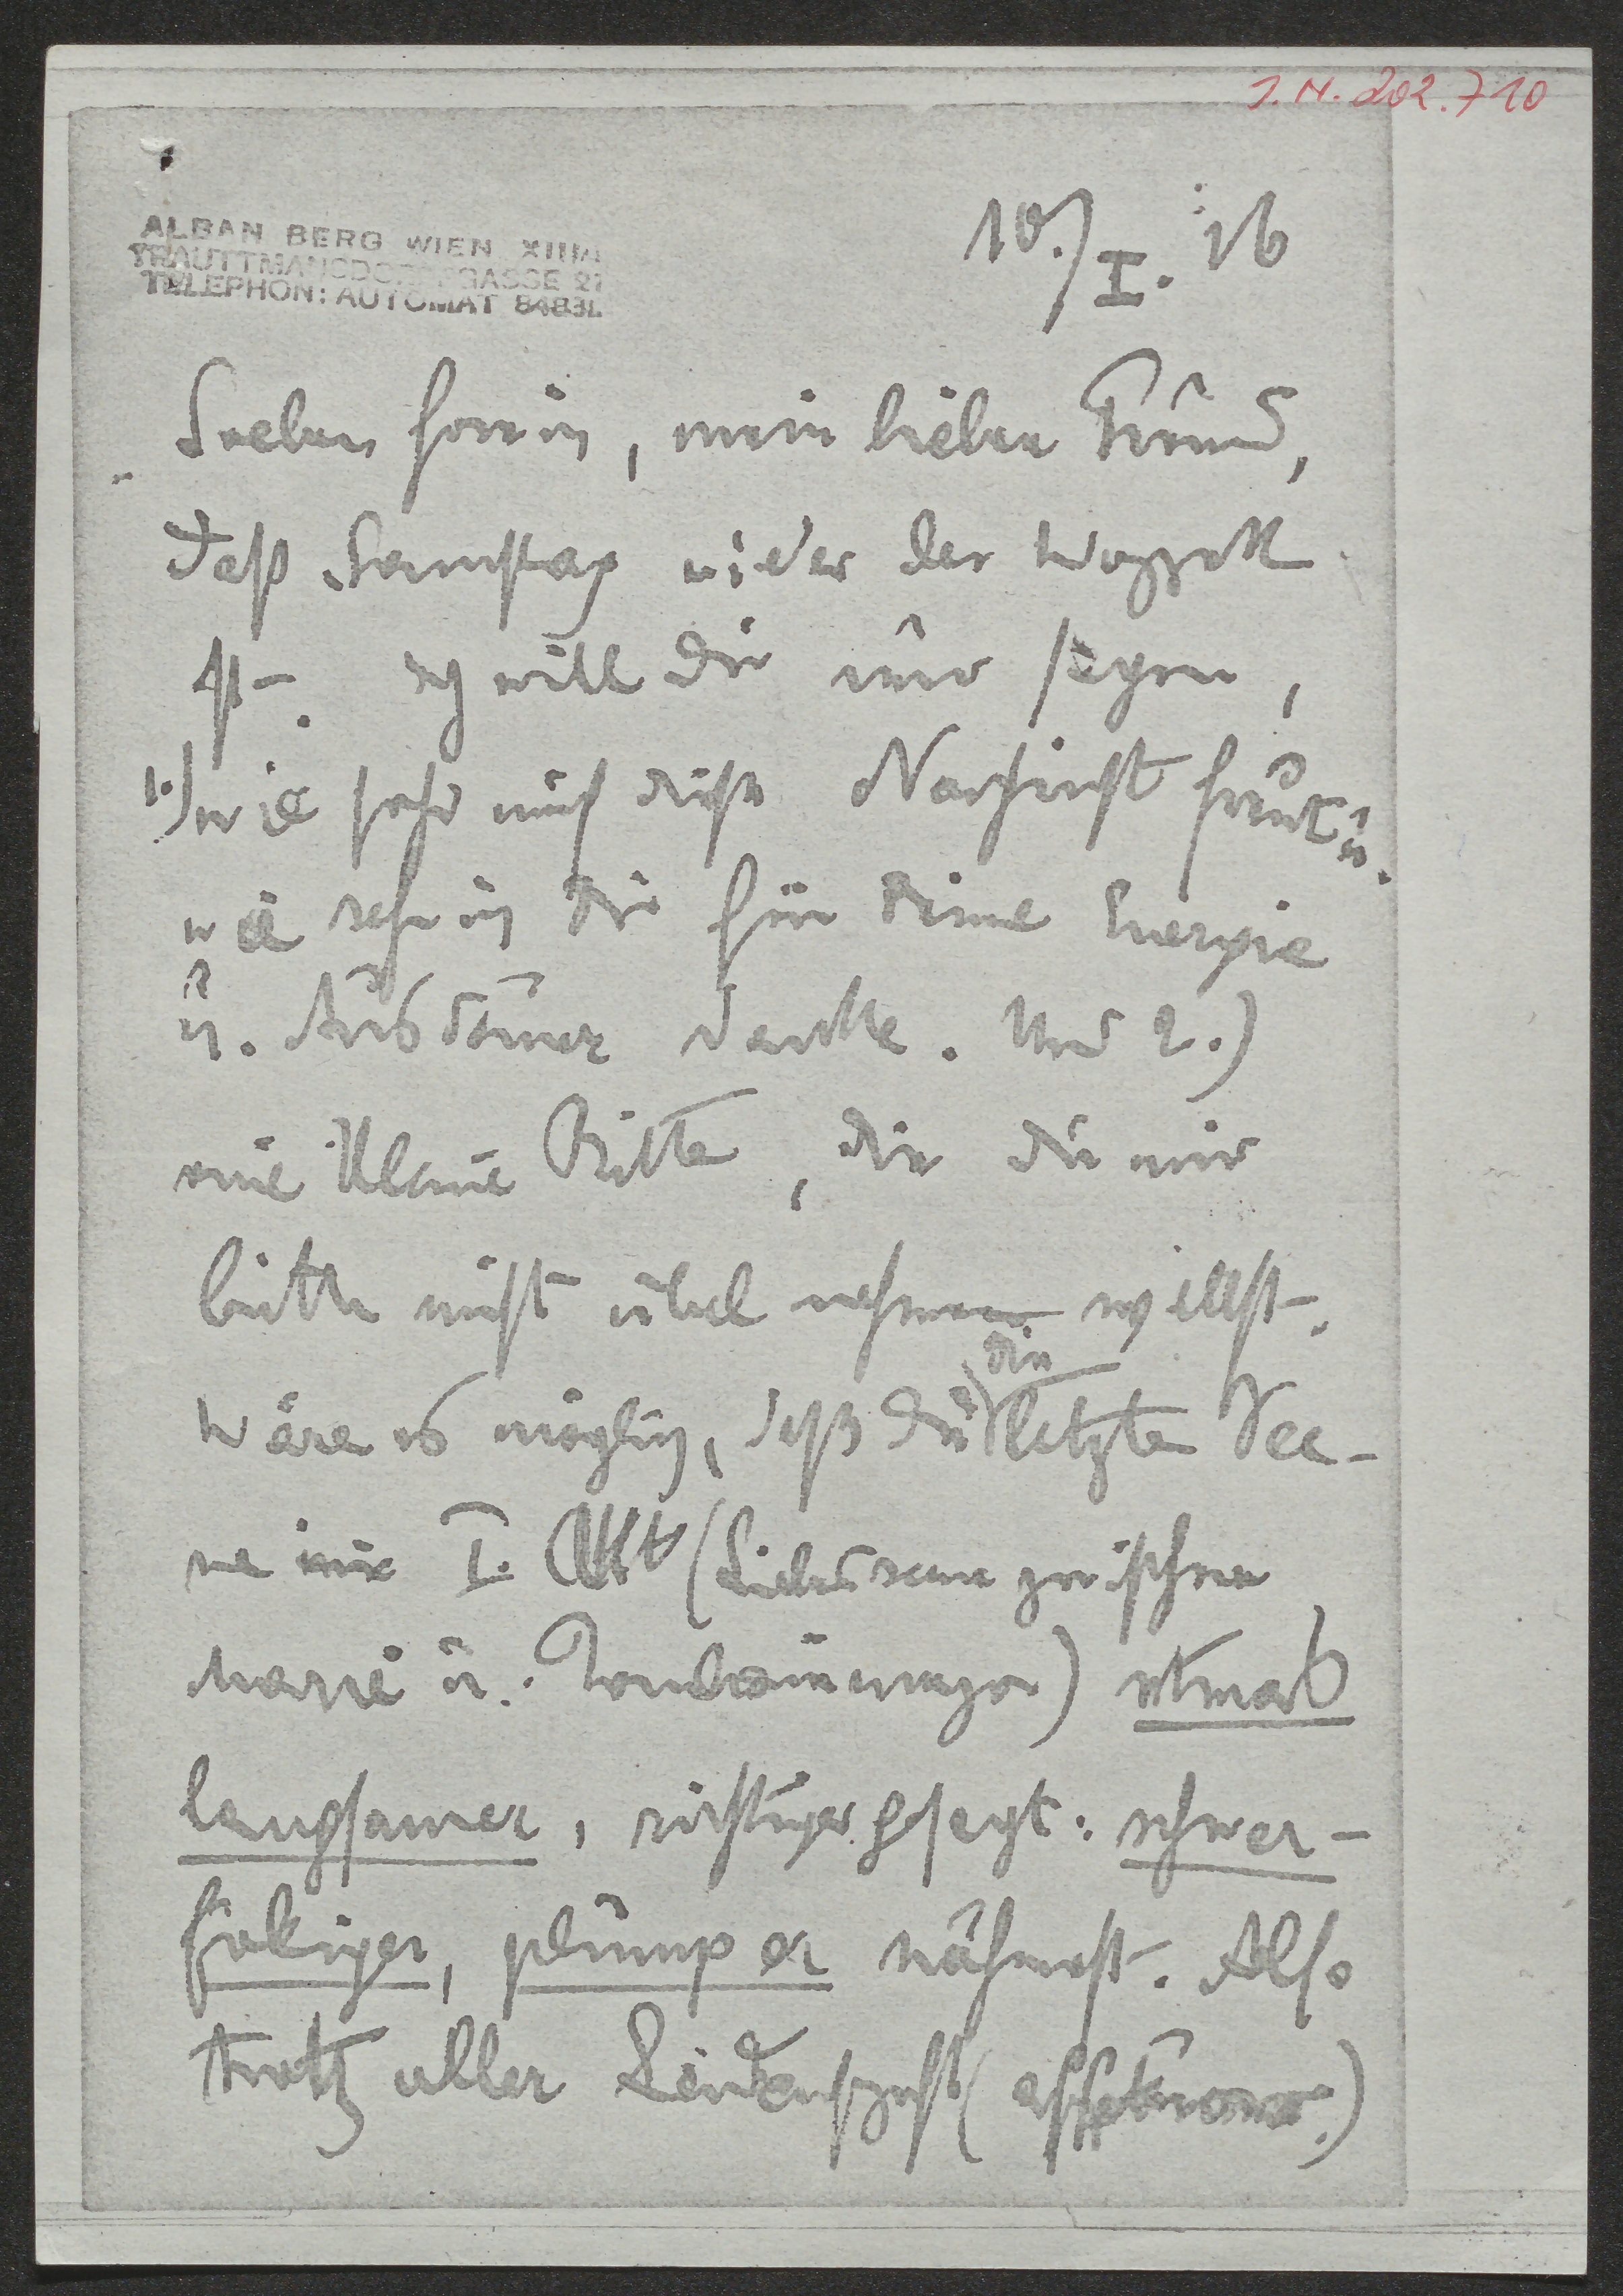 I.N. 202.710
ALBAN BERG WIEN XIII/1
TRAUTTMANSDORFFGASSE 27
TELEPHON: AUTOMAT 84831
10./I. 26
Soeben hör ich, mein lieber Freund,
daß Samstag wieder der Wozzeck
ist. Ich will Dir nur sagen,
1.) wie sehr mich diese Nachricht freut u.
wie sehr ich Dir für Deine Energie
u. Ausdauer danke. Und 2.)
eine kleine Bitte, die Du mir
bitte nicht übel nehmen willst.
Wäre es möglich, daß Du die letzte Sce-
ne im I. Akt (Liebesscene zwischen
Marie u. Tambourmajor) etwas
langsamer, richtiger gesagt: schwer-
fälliger, plumper nähmest. Also
trotz aller Leidenschaft (affetuoso)